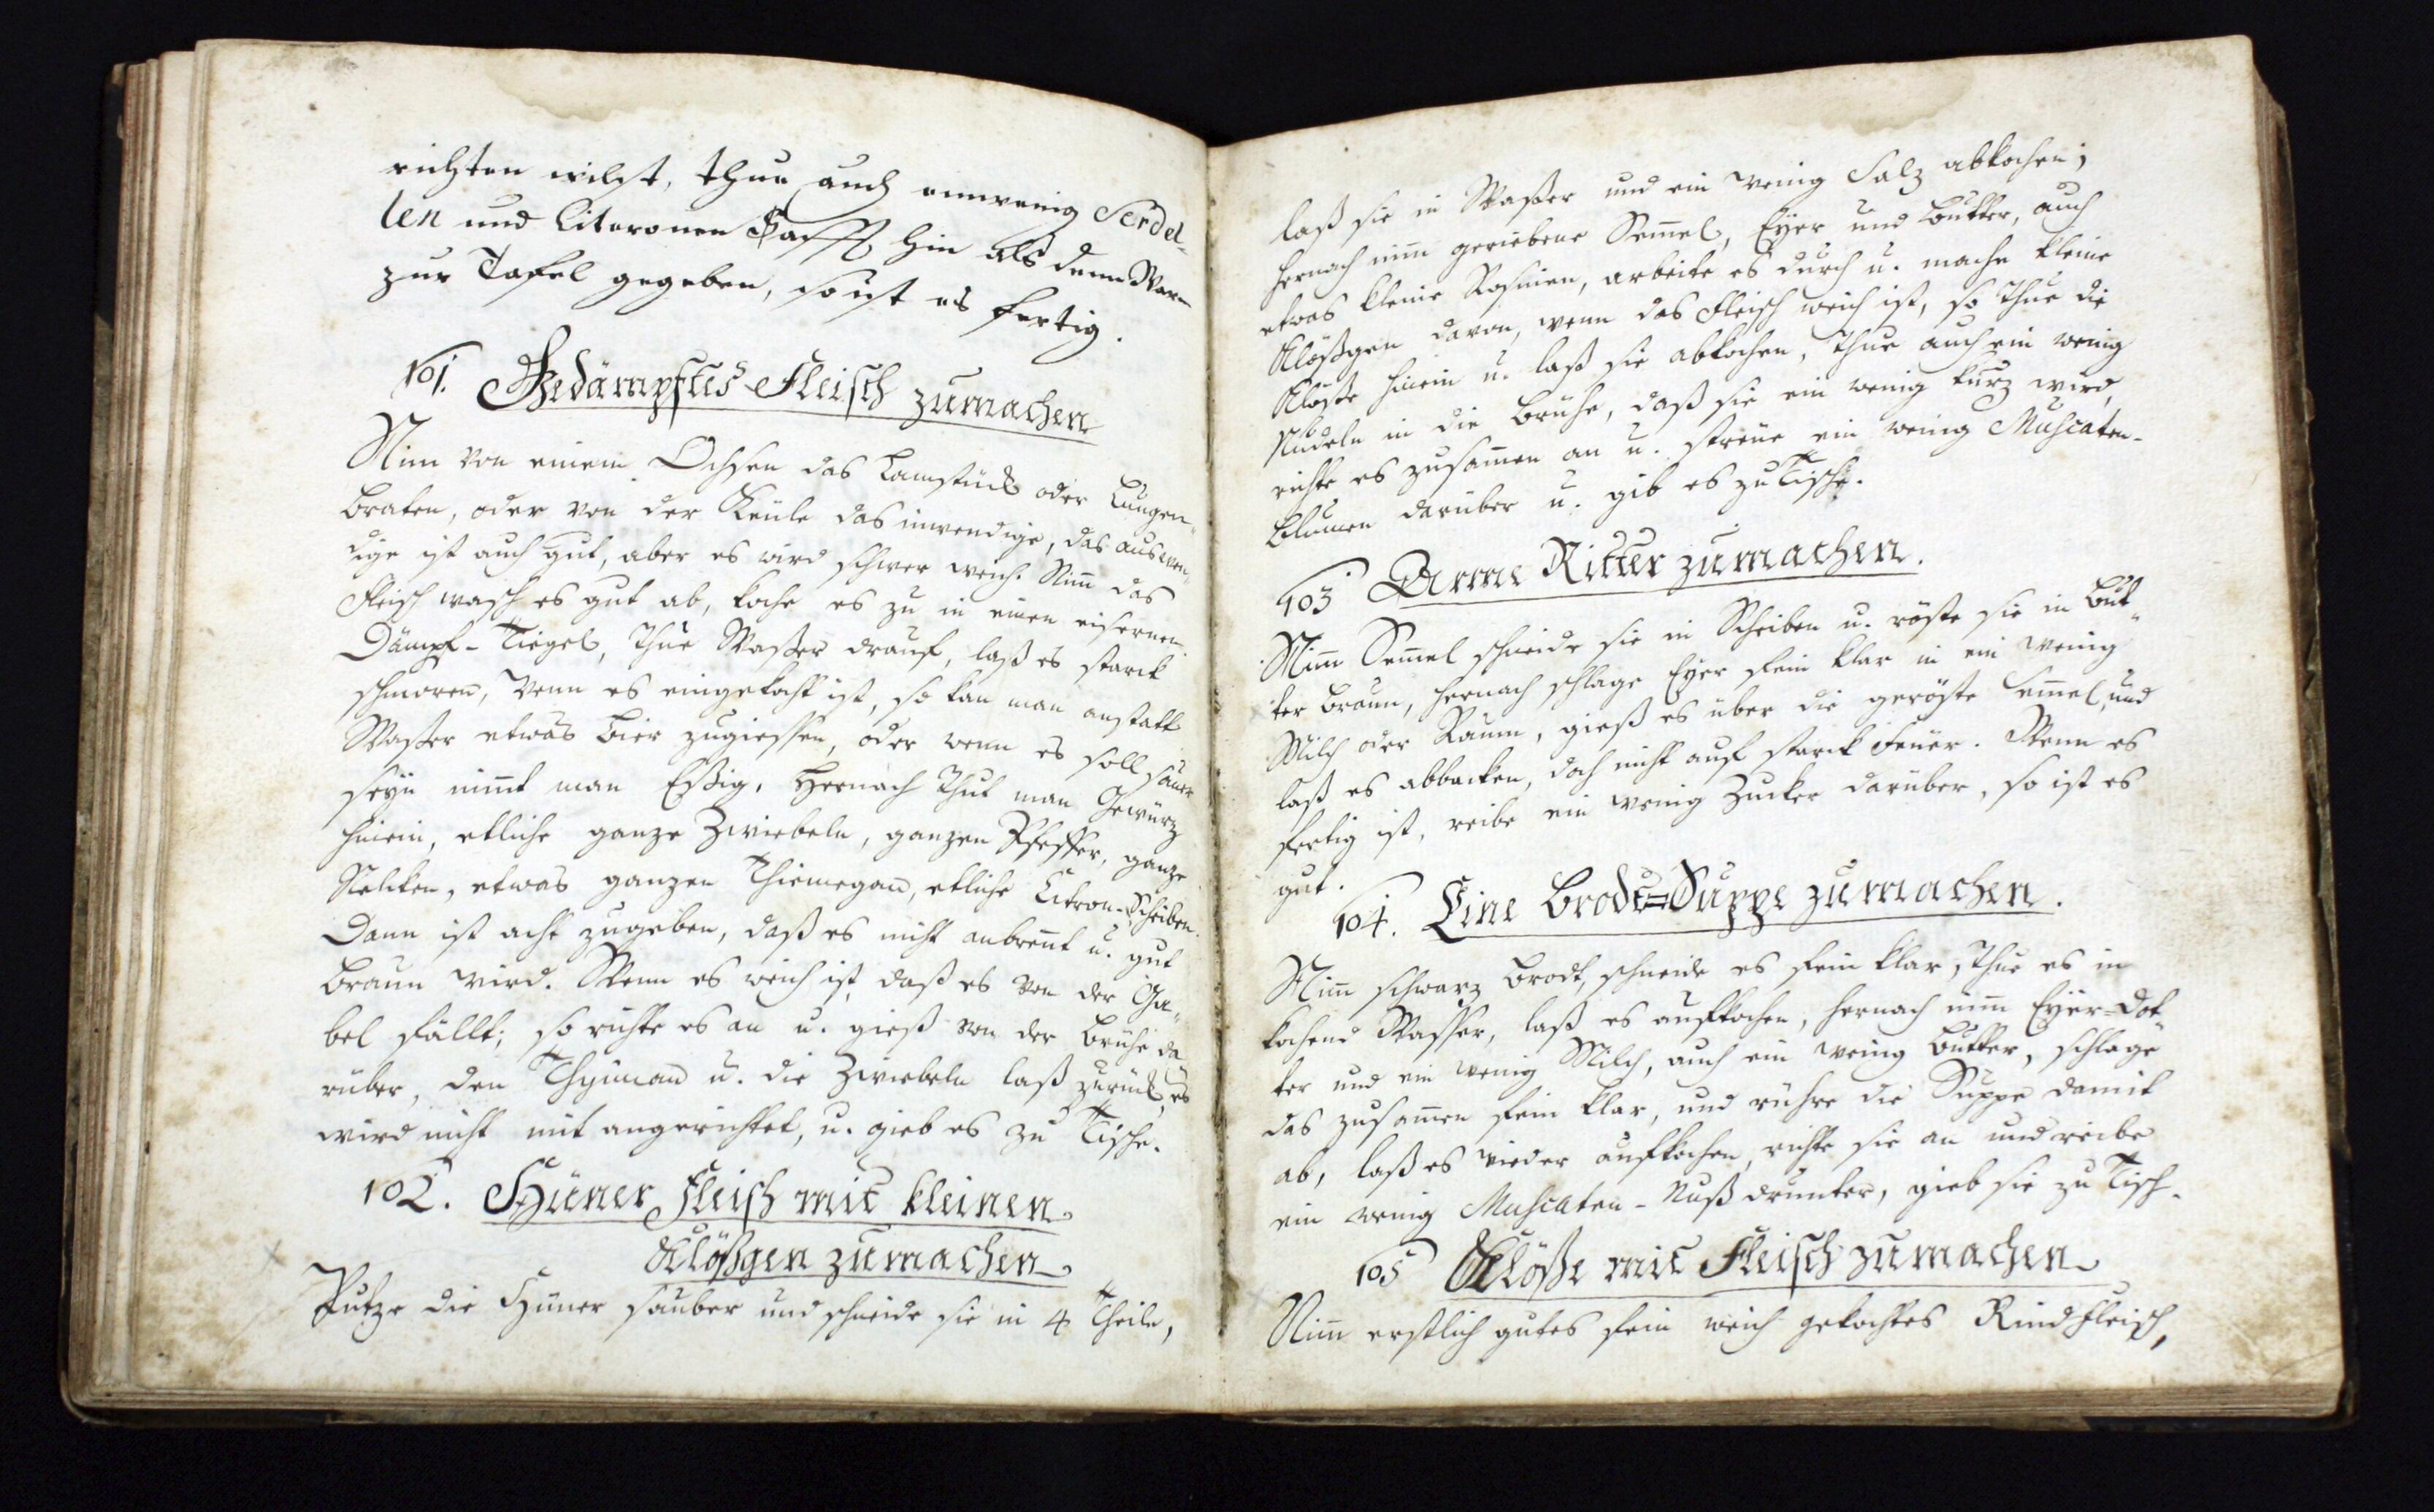 richten wilst, thue auch einwenig Serdel-
len und Citeronen Safft hin als denn Warm
zur Tafel gegeben, so ist es fertig.
101. Gedämpftes Fleisch zumachen
Nim von einem Ochsen das Lamstück oder Lungen-
braten, oder von der Keule das inwendige, das auswen-
dige ist auch gut, aber es wird schwer weich. Nim̅ das
Fleisch wasch es gut ab, koche es zu in einen eisernen
Dämpf-Tiegel, thue Waßer drauf, laß es starck
schmoren, Wenn es eingekocht ist, so kan man anstatt
Waßer etwas Bier zugiessen, oder wenn es soll sauer
seyn nim̅t man Eßig. Hernach thut man Gewürtz
hinein, etliche ganze Zwiebeln, ganzen Pfeffer, ganze
Nelcken, etwas ganzen Thiemegan, etliche Citron-Scheiben.
Dann ist acht zugeben, daß es nicht anbren̅t u. gut
braun wird. Wenn es weich ist, daß es von der Ga-
bel fällt; so richte es an u. gieß von der Brühe da-
rüber, den Thyman u. die Zwiebeln laß zurück, es
wird nicht mit angerichtet, u. gieb es zu Tische.
102. Hüner Fleisch mit kleinen
Klößgen zumachen
Putze die Hüner sauber und schneide sie in 4 Theile,
laß sie in Waßer und ein wenig Salz abkochen;
hernach nim̅ geriebene Sem̅el, Eyer und Butter, auch
etwas kleine Rosinen, arbeite es durch u. mache kleine
Klößgen davon, wenn das Fleisch weich ist, so thue die
Klöße hinein u. laß sie abkochen, thue auch ein wenig
Nudeln in die Brühe, daß sie ein wenig kurz wird,
richte es zusam̅en an u. streue ein wenig Muscaten-
blumen darüber u. gib es zu Tische.
103 Arme Ritter zumachen.
Nim̅ Sem̅el schneide sie in Scheiben u. röste sie in But-
ter braun, hernach schlage Eyer fein klar in ein wenig
Milch oder Raum, gieß es über die geröste Sem̅el, und
laß es abbacken, doch nicht auf starck Feuer. Wenn es
fertig ist, reibe ein wenig Zucker darüber, so ist es
gut.
104. Eine Brodt=Suppe zumachen.
Nim̅ schwarz Brodt, schneide es fein klar, thue es in
kochend Wasser, laß es aufkochen, hernach nim̅ Eyer=Dot-
ter und ein wenig Milch, auch ein wenig Butter, schlage
das zusam̅en fein klar, und rühre die Suppe damit
ab, laß es wieder aufkochen, richte sie an und reibe
ein wenig Muscaten-Nuß drunter, gieb sie zu Tisch.
105 Klöße mit Fleisch zumachen
Nim̅ erstlich gutes fein weich gekochtes Rindfleisch,